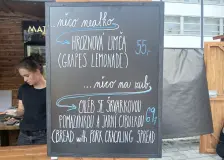 MAT
...něco malko...
HROZNOVÁ LIMČA 55,-
(GRAPES LEMONADE)
...něco na zub...
CHLÉB SE ŠKVARKOVOU
POMAZÁNKOU A JARNÍ CIBULKOU 69,-
(BREAD with PORK CRACKLING SPREAD)